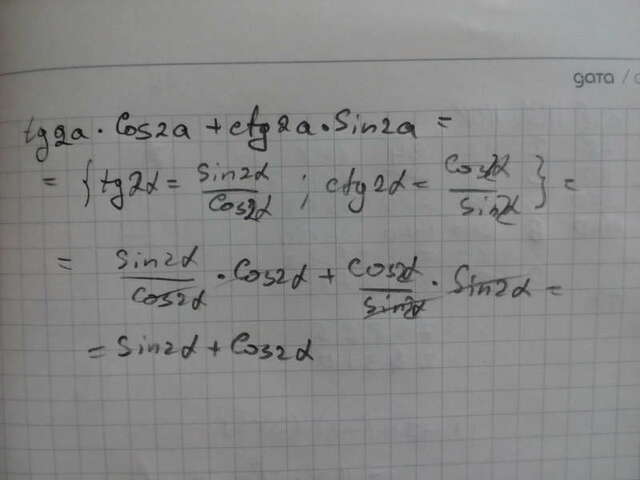 дата / с
tg2a · Cos2a + ctg2a · Sin2a =
= { tg2α = Sin2α / Cos2α ; ctg2α = Cos2α / Sin2α } =
= Sin2α / Cos2α · Cos2α + Cos2α / Sin2α · Sin2α =
= Sin2α + Cos2α